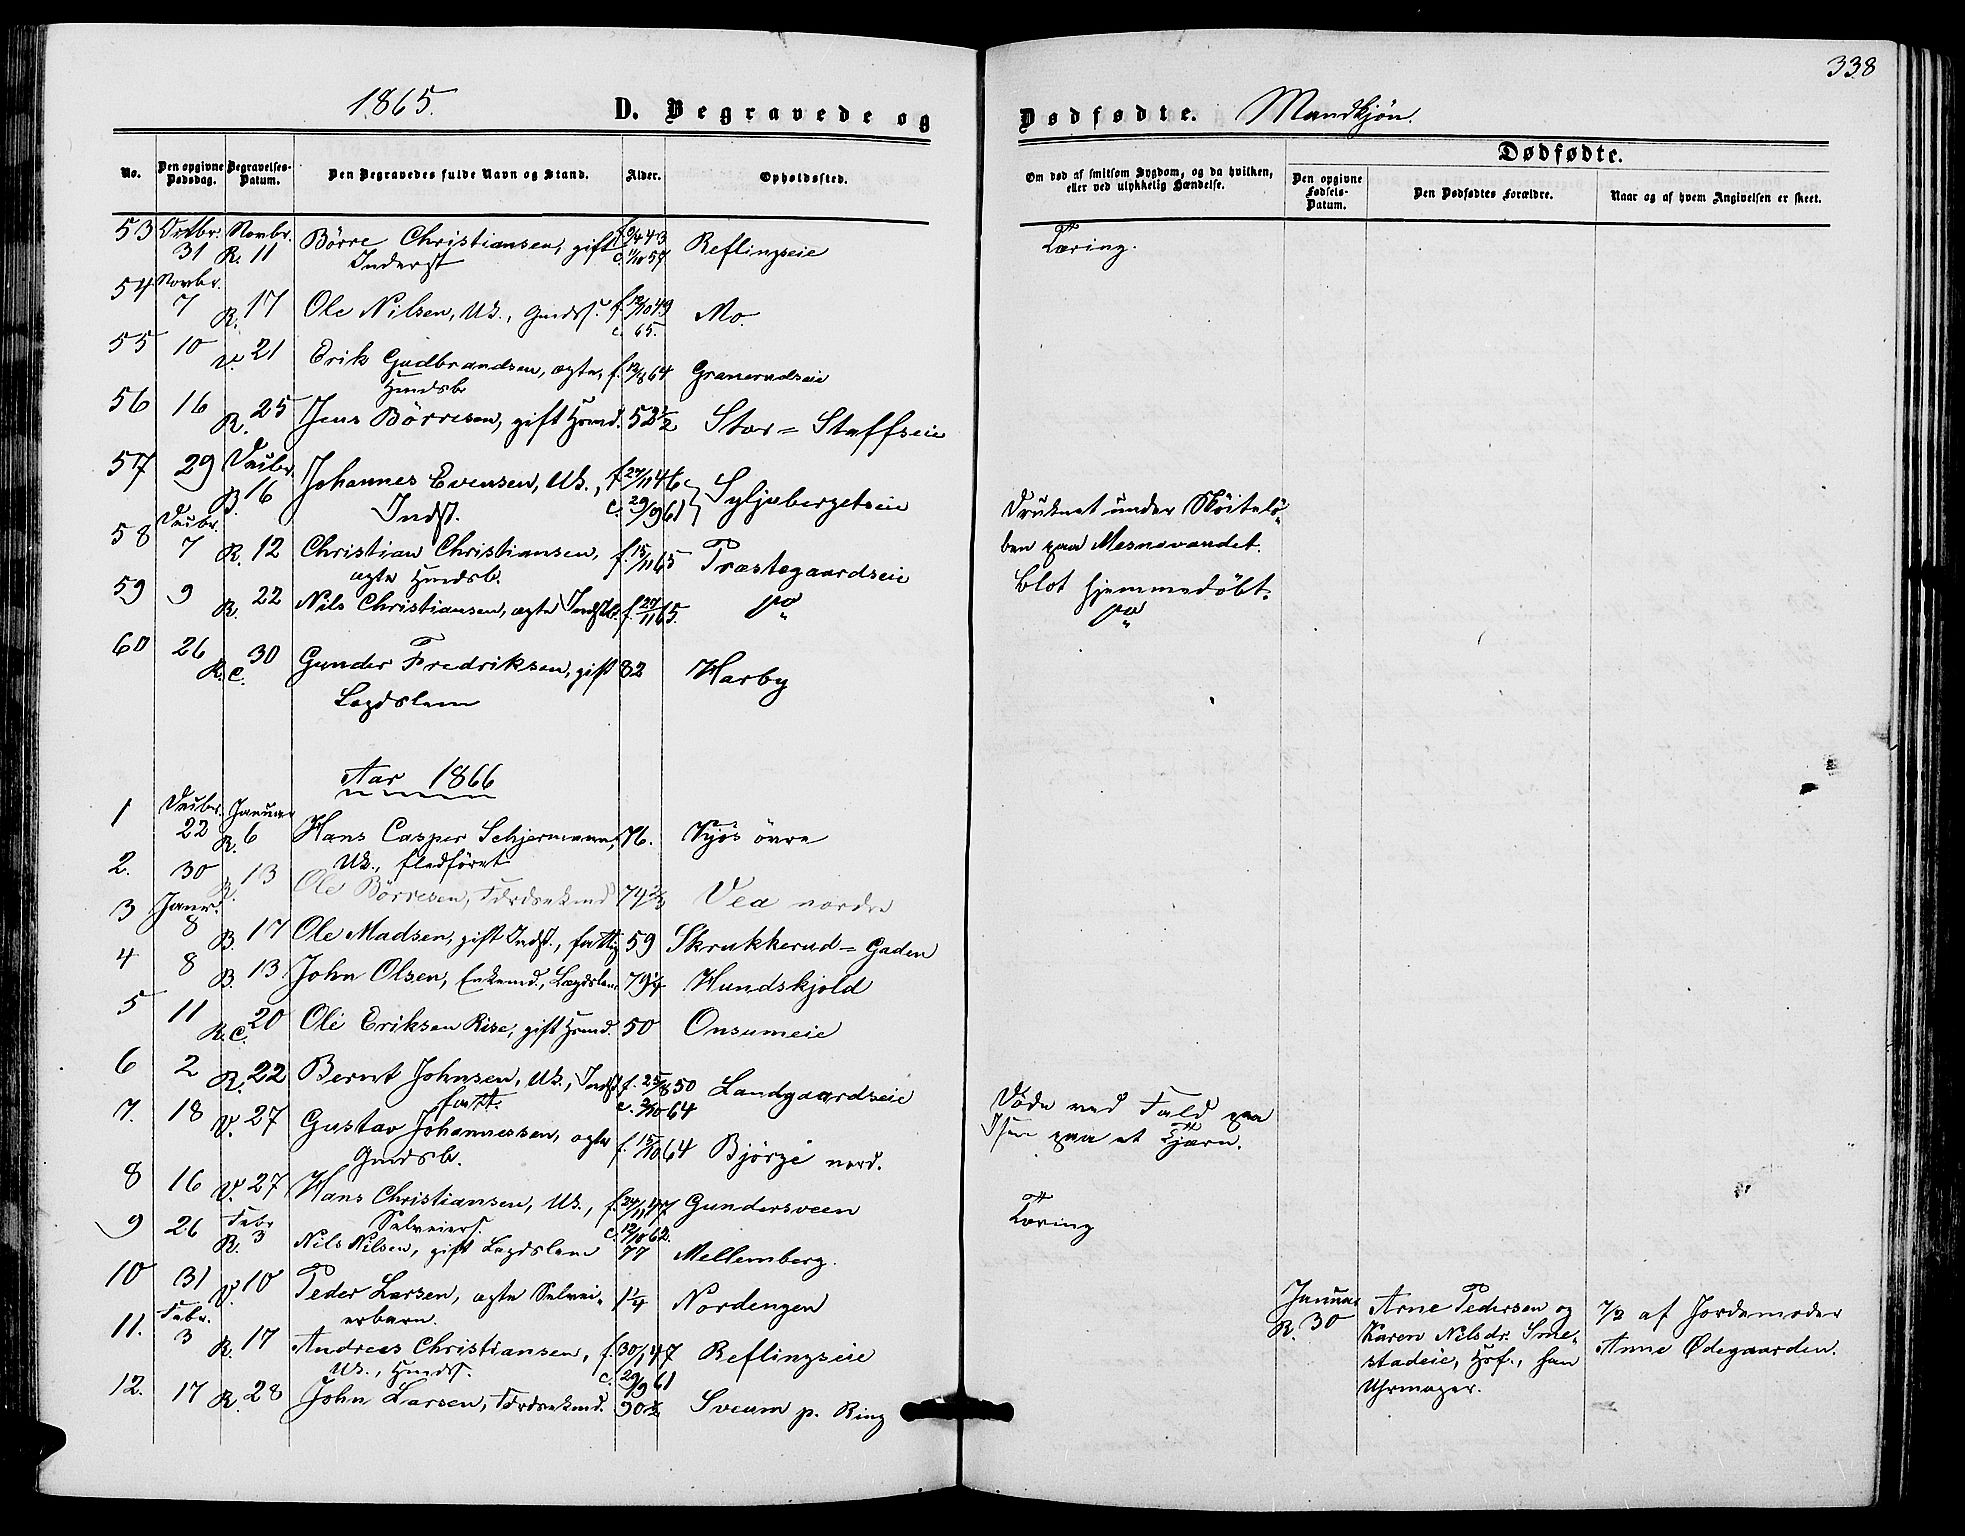 338
1865.
D. Begravede og Dødfødte. Mandkjøn.
No.
Den opgivne Dødsdag.
Begravelses-Datum.
Den Begravedes fulde Navn og Stand.
Alder.
Opholdssted.
Om død af smitsom Sygdom, og da hvilken, eller ved ulykkelig Hændelse.
Dødfødte.
Den opgivne Fødsels-Datum.
Den Dødfødtes Forældre.
Naar og af hvem Angivelsen er skeet.
53 Octbr. 31 Novbr. R. 11 Börre Christiansen, gift Inderst Reflingseie Tæring.
54 Novbr. 7 R. 17 Ole Nilsen, Uk., Gmdss. f. 12/10 49 c. 65. Mo.
55 10 V. 21 Erik Gudbrandsen, ægte Hmdsb. f. 12/8 64 Granerudseie
56 16 R. 25 Jens Börresen, gift Hsmd. 52½ Stor=Staffseie
57 29 Decbr. B. 16 Johannes Evensen, Uk., Indst. f. 27/11 46 c. 29/9 61 Syljubergetseie Druknet under Skøitelø-
ben paa Mesnevandet.
58 Decbr. 7 R. 12 Christian Christiansen, ægte Hmdsb. f. 15/11 65 Præstegaardseie Blot hjemmedøbt.
59 9 R. 22 Nils Christiansen, ægte Indstb. f. 27/11 65. do do
60 26 R. C. 30 Gunder Fredriksen, gift Lægdslem 82 Harby
Aar 1866
1 Decbr. 22 Januar R. 6 Hans Casper Schjermann, Uk., fledført 76. Kjøs övre
2. 30 R. 13 Ole Börresen, Fdrdsenkmd 74 Vea nordre
3 Janr. 8 B. 17 Ole Madsen, gift Indst., fattig 59 Skrukkerud=Gaden
4 8 B. 13 John Olsen, Enkemd., Lægdslem 79¼ Hundskjold
5 11 R. C. 20 Ole Eriksen Rise, gift Hsmd. 50 Onsumeie
6 2 R. 22 Bernt Johnsen, Uk., Indst. f. 25/8 50 c. 2/10 64 Landgaardseie Døde ved Fald paa
Isen paa et Tjærn.
7. 18 V. 27 Gustav Johannessen, ægte Gmdsb. f. 15/10 64 Björge nord.
8 16 V. 27 Hans Christiansen, Uk., Selveiers. f. 24/11 47 c. 12/10 62. Gundersveen Tæring
9 26 Febr R. 3 Nils Nilsen, gift Lægdslem 77 Mellemberg.
10 31 V. 10 Peder Larsen, ægte Selvei-
erbarn. 1¼ Nordengen
Januar R. 30 Arne Pedersen og
Karen Nilsdr. Sme-
stadeie, Hsf., han
Uhrmager.
7/2 af Jordemoder
Anne Ødegaarden.
11. Febr. 3 R. 17 Andreas Christiansen, Uk., Hmdss. f. 30/1 47 c. 29/9 61 Reflingseie
12. 17 R. 28 John Larsen, Fdrdsenkmd. 90½ Sveum p. Ring